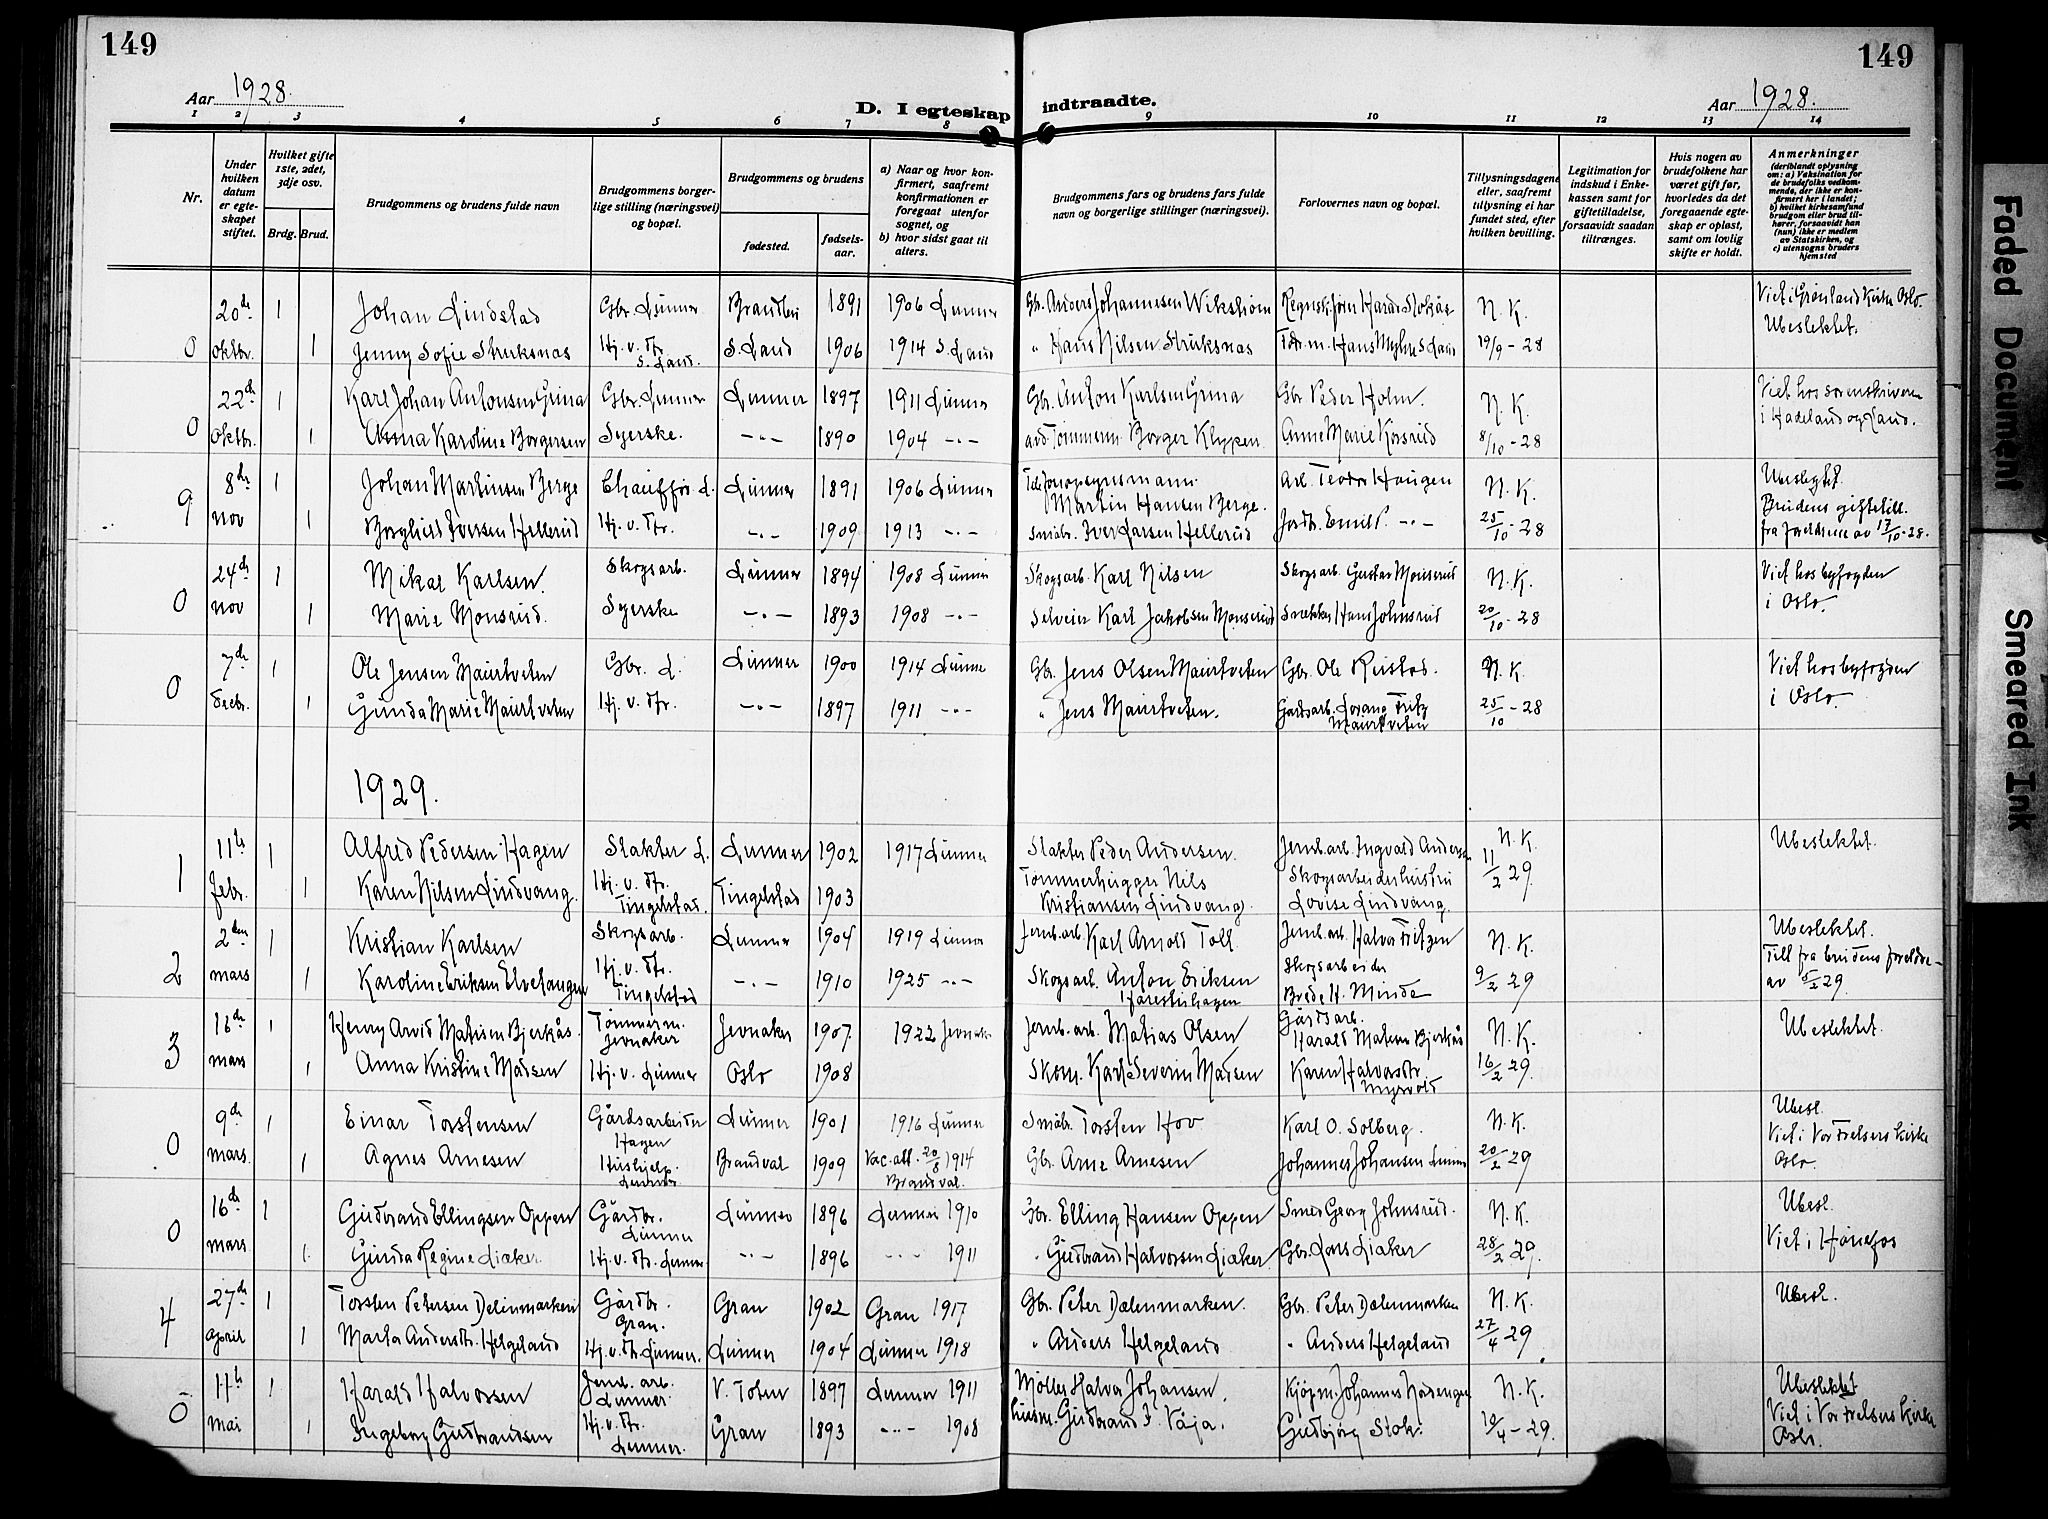 149
149
Aar 1928.
Aar 1928.
D. I egteskap indtraadte.
1 2 3 4 5 6 7 8 9 10 11 12 13 14
Nr.
Under hvilken datum er egteskapet stiftet.
Hvilket gifte 1ste, 2det, 3dje osv.
Brdg. Brud.
Brudgommens og brudens fulde navn
Brudgommens borgerlige stilling (næringsvei) og bopæl.
Brudgommens og brudens
fødested.
fødselsaar.
a) Naar og hvor konfirmert, saafremt konfirmationen er foregaat utenfor sognet, og
b) hvor sidst gaat til alters.
Brudgommens fars og brudens fars fulde navn og borgerlige stillinger (næringsvei).
Forlovernes navn og bopæl.
Tillysningsdagene eller, saafremt tillysning ei har fundet sted, efter hvilken bevilling.
Legitimation for indskud i Enkekassen samt for giftetilladelse, forsaavidt saadan tiltrænges.
Hvis nogen av brudefolkene har været gift før, hvorledes da det foregaaende egteskap er opløst, samt om lovlig skifte er holdt.
Anmerkninger
(deriblandt oplysning om: a) Vaksination for de brudefolks vedkommende, der ikke er konfirmert her i landet; b) hvilket kirkesamfund brudgom eller brud tilhører, forsaavidt han (hun) ikke er medlem av Statskirken, og c) utensogns bruders hjemsted
20de 1 Johan Lindstad Gbr. Lunner Brandbu 1891 1906 Lunner Gb. Anders Johannesen Wikstrøm N. K. Viet i Grønland Kirke Oslo.
0 oktbr. 1 Jenny Sofie Struksnas Hj. v. dtr. S. Land. S. Land 1906 1914 S. Land " Hans Nilsen Struksnas 19/9 - 28 Ubeslektet.
22de 1 Karl Johan Antonsen Grina Gbr. Lunner Lunner 1897 1911 Lunner Gb. Anton Karlsen Grina Gb. Peder Holm. N. K. Viet hos sorenskriveren
0 Oktbr. 1 Anna Karoline Borgersen Syerske. -"- 1890 1904 -"- avd. Tømmerm. Borger Klypen Anne Marie Korsrud 8/10 - 28 i Hadeland og Land.
8de 1 Johan Martinsen Berge Chauffør L. Lunner 1891 1906 Lunner Martin Hansen Berge. Arb. Teodor Haugen N. K. Ubeslegtet.
9 nov 1 Borghild Iversen Hellerud Hj. v. dtr. -"- 1909 1913 -"- Småbr. Iver Larsen Hellerud Emil P. -"- 25/10 - 28 Brudens giftetill. fra foreldrene av 17/10-28.
24de 1 Mikal Karlsen. Skogsarb. Lunner 1894 1908 Lunner Skogsarb. Karl Nilsen Skogsarb. Gustav Monserud N. K. Viet hos byfogden
0 nov 1 Marie Monsrud. Syerske -"- 1893 1908 -"- Selveier Karl Jakobsen Monserud Snekker Hans Johnsrud 20/10 - 28 i Oslo.
7de 1 Ole Jensen Maurtveten Gbr. L. Lunner 1900 1914 Lunner Gb. Jens Olsen Maurtveten Gbr. Ole Rustad. N. K. Viet hos byfogden
0 decbr. 1 Gunda Marie Maurtveten Hj. v. dtr. -"- 1897 1911 -"- " Jens Maurtveten. Gårdsarb. Fritz Maurtveten 25/10 - 28 i Oslo.
1929.
11te 1 Alfred Pedersen Hagen Slakter L. Lunner 1902 1917 Lunner Slakter Peder Andersen. Jernb.arb. Ingvald Andersen N. K. Ubeslektet.
1 febr. 1 Karen Nilsen Lindvang. Hj. v. dtr. Tingelstad. Tingelstad 1903 Tømmerhugger Nils Kristiansen Lindvang. Skogsarbeiderhustru Lovise Lindvang. 11/2 29.
2den 1 Kristian Karlsen Skogsarb. Lunner 1904 1919 Lunner Jernb.arb. Karl Arnold Toll Jernb.arb. Halvor Fritzen N. K. Ubeslektet.
2 mars 1 Karoline Eriksen Elvetangen Hj. v. dtr. Tingelstad -"- 1910 1925 -"- Skogsarb. Anton Eriksen Harestuhagen Skogsarbeider Brede H. Minde 9/2 29 Till fra brudens foreldre av 5/2 29.
16de 1 Henry Arvid Matisen Bjerkås. Tømmerm. Jevnaker Jevnaker 1907. 1922 Jevnaker Jernb.arb. Matias Olsen Gårdsarb. Harald Matisen Bjerkås N. K. Ubeslektet.
3 mars 1 Anna Kristine Madsen Hj. v. Lunner Oslo 1908 Skom. Karl Severin Madsen Karen Halvorsdtr. Myrvold 16/2 29.
9de 1 Einar Torstensen Gårdsarbeider Hagen Lunner 1901 1916 Lunner Småbr. Torsten Hov Karl O. Solberg. N. K. Ubesl.
0 mars. 1 Agnes Arnesen Hushjelp. Lunner Brandval 1909 Vac. att. 20/6 1914 Brandval. Gbr. Arne Arnesen Johannes Johansen Lunner 20/2 29 Viet i Vor Frelsers Kirke Oslo.
16de 1 Gudbrand Ellingsen Oppen Gårdbr. Lunner Lunner 1896 Lunner 1910 Gbr. Elling Hansen Oppen Smed Georg Johnsrud. N. K. Ubesl.
0 mars 1. Gunda Regine Liaker. Hj. v. dtr. Lunner. -"- 1896 -"- 1911 " Gudbrand Halvorsen Liaker Gbr. Lars Liaker 28/2 29. Viet i Hønefos
27de 1 Torsten Petersen Delinmarken Gårdbr. Gran. Gran 1902 Gran 1917 Gbr. Peter Dælenmarken. Gbr. Peter Dælenmarken N. K. Ubesl.
4 April 1 Marta Andersdtr. Helgeland Hj. v. dtr. Lunner. Lunner 1904 Lunner 1918 " Anders Helgeland " Anders Helgeland 27/4 29.
11te 1 Harald Halvorsen Jernb. arb. Lunner V. Toten 1897 Lunner 1911 Møller Halvor Johansen. Kjøpm. Johannes N. K. Ubeslektet
0 mai 1 Ingeborg Gudbrandsen Hj. v. dtr. Lunner. Gran 1893 -"- 1908 Gudbrand I. Våja. Gudbjørg Stok. 19/4 - 29. Viet i Vor Frelsers Kirke Oslo.
Faded Document
Smeared Ink